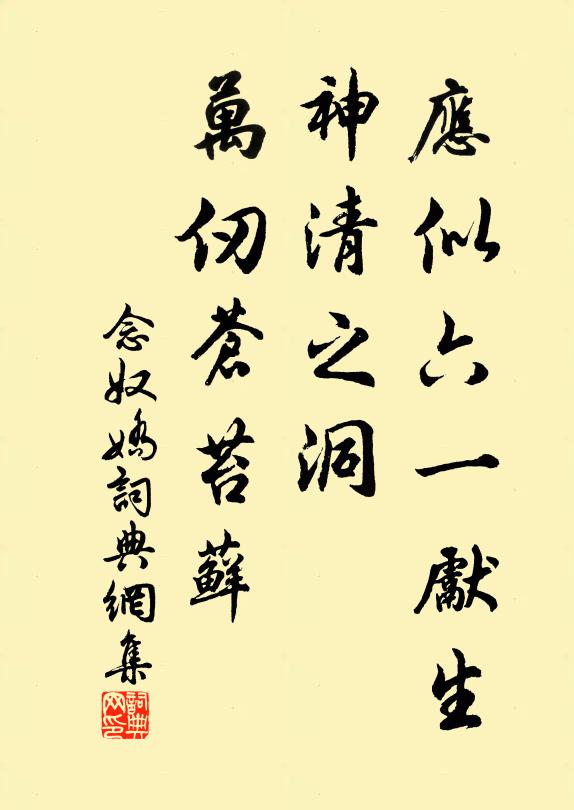 應似六一獻生
神清之洞
萬仞蒼苔蘚
念奴嬌詞典網集
詞典網印